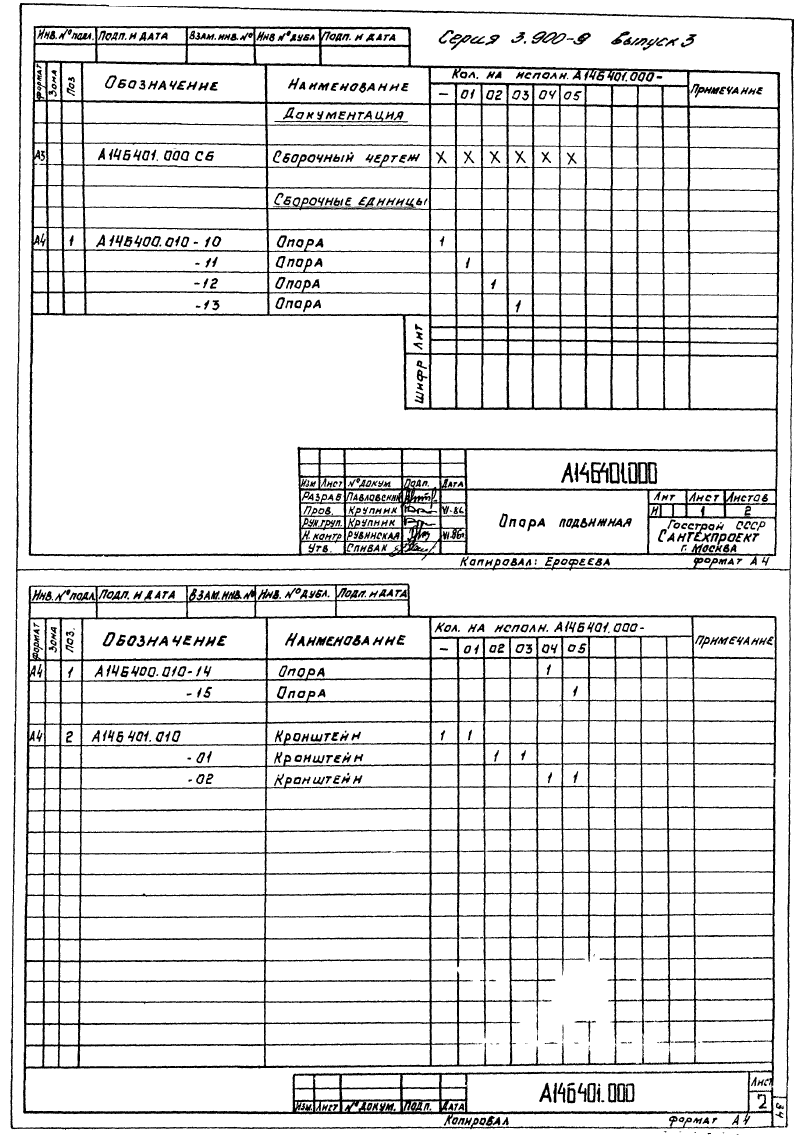 Серия 3.900-9 выпуск 3
Инв. № подл. Подп. и дата Взам. инв. № Инв № дубл Подп. и дата
Формат Зона Поз Обозначение Наименование Кол. на исполн. А14Б401.000- Примечание
- 01 02 03 04 05
Документация
А3 А14Б401.000 СБ Сборочный чертеж X X X X X X
Сборочные единицы
А4 1 А14Б400.010-10 Опора 1
-11 Опора 1
-12 Опора 1
-13 Опора 1
Лит
Шифр
А14Б401.000
Изм Лист № докум. Подп. Дата
Разраб Павловский
Пров. Крупник VI-86
Рук.груп. Крупник
Н. контр Рубинская VI.86г
Утв. Спивак
Опора подвижная
Лит Лист Листов
И 1 2
Госстрой СССР
Сантехпроект
г. Москва
Копировал: Ерофеева формат А4
Инв. № подл. Подп. и дата Взам. инв. № Инв. № дубл. Подп. и дата
Формат Зона Поз. Обозначение Наименование Кол. на исполн. А14Б401.000- Примечание
- 01 02 03 04 05
А4 1 А14Б400.010-14 Опора 1
-15 Опора 1
А4 2 А14Б401.010 Кронштейн 1 1
-01 Кронштейн 1 1
-02 Кронштейн 1 1
Изм. Лист № докум. Подп. Дата
А14Б401.000
Лист
2
34
Копировал формат А4